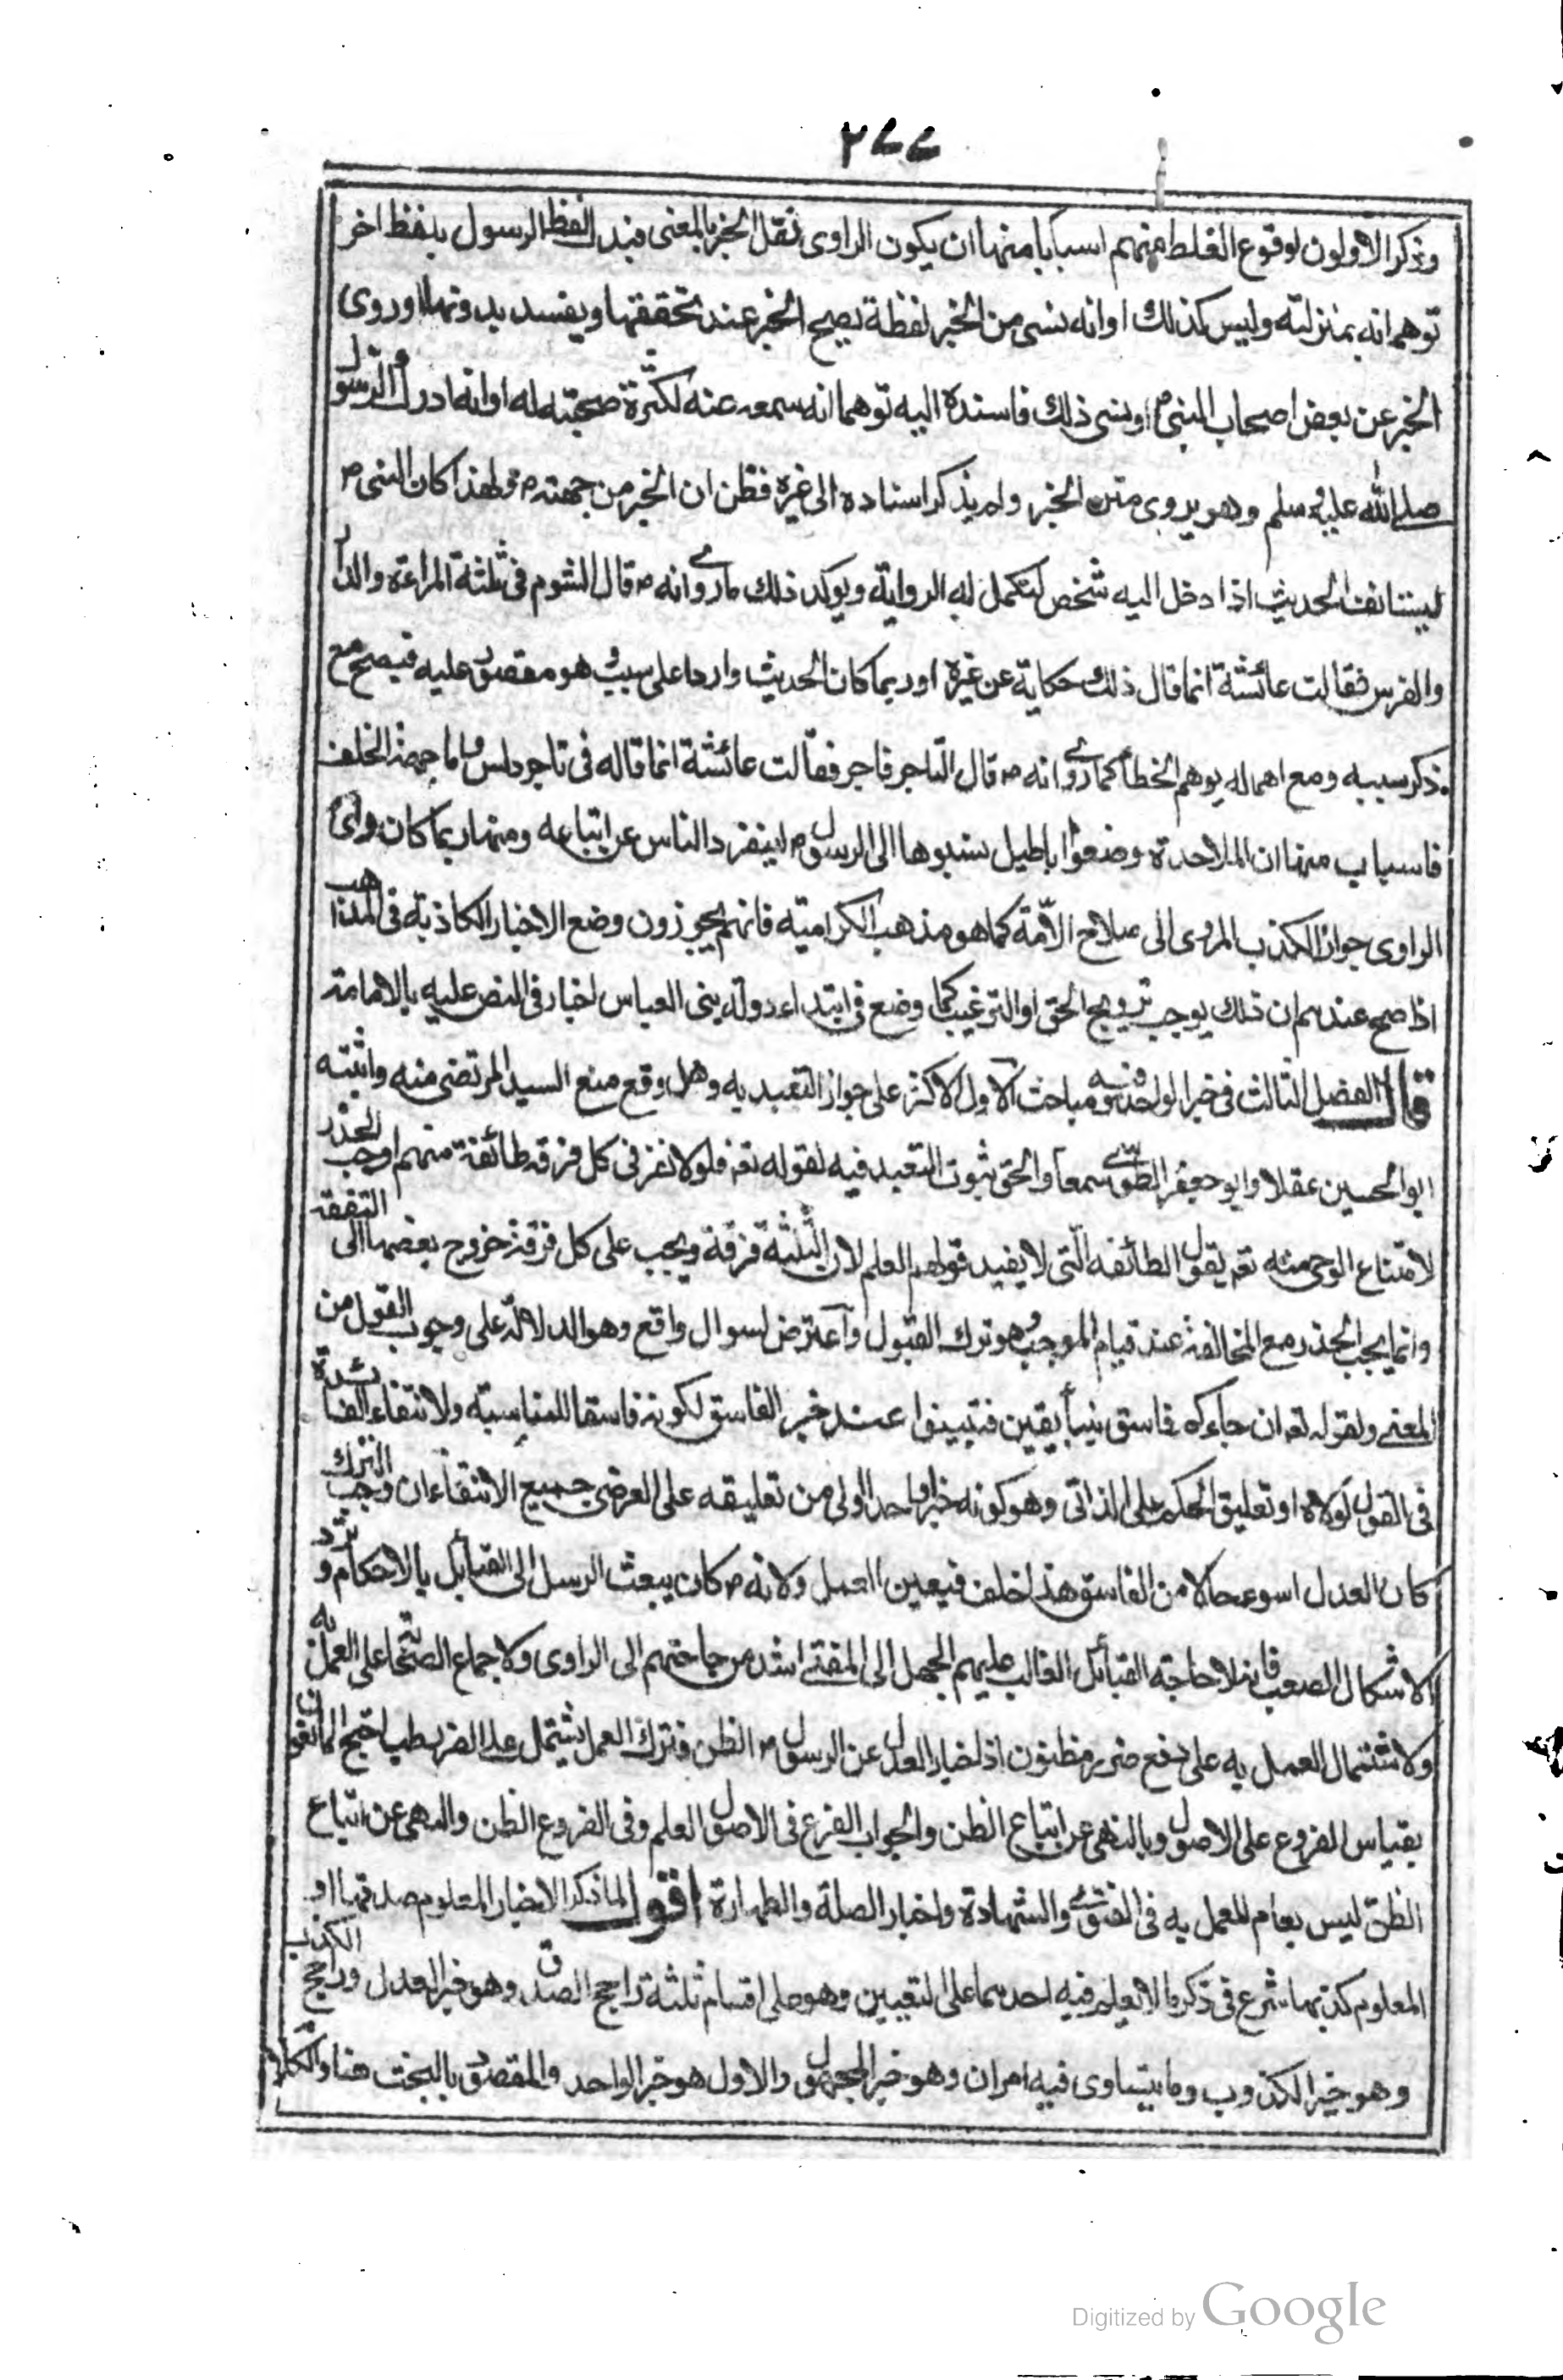 ٢٧٧
وذكر الاولون لوقوع الغلط منهم اسبابا منها ان يكون الراوى نقل الخبر بالمعنى فبدل لفظ الرسول بلفظ اخر
توهم انه بمنزلته وليس كذلك او انه نسى من الخبر لفظة يصح الخبر عند تحققها ويفسد بدونها او روى
الخبر عن بعض اصحاب النبى م ونسى ذلك فاسنده اليه توهما انه سمعه عنه لكثرة صحبته له او انه ادرك الرسول
صلى الله عليه وسلم وهو يروى متن الخبر ولم يذكر اسناده الى غيره فظن ان الخبر من جهته ص ولهذا كان النبى ص
ليستانف الحديث اذا دخل اليه شخص لتكمل له الرواية ويوكد ذلك ما روى انه ص قال الشوم فى ثلثة المراءة والدار
والفرس فقالت عائشة انما قال ذلك حكاية عن غيره او ربما كان الحديث واردا على سبب وهو مقصور عليه فيصح مع
ذكر سببه ومع اهماله يوهم الخطأ كما روى انه ص قال التاجر فاجر فقالت عائشة انما قاله فى تاجر دلس واما جهة الخلف
فاسباب منها ان الملاحدة وضعوا اباطيل نسبوها الى الرسول ص لينفرد الناس عن اتباعه ومنها ربما كان راى
الراوى جواز الكذب المؤدى الى صلاح الامة كما هو مذهب الكرامية فانهم يجوزون وضع الاخبار الكاذبة فى المذاهب
اذا صح عندهم ان ذلك يوجب ترويج الحق او الترغيب كما وضع فى ابتداء دولة بنى العباس اخبار فى النص عليه بالامامة
قال الفصل الثالث فى خبر الواحد وفيه مباحث الاول الاكثر على جواز التعبد به وهل وقع منع السيد المرتضى منه واثبته
ابو الحسين عقلا وابو جعفر الطوسى سمعا والحق ثبوت التعبد فيه لقوله تعه فلولا نفر فى كل فرقة طائفة منهم اوجب الحذر
لامتناع الوحى منه تعه بقول الطائفة التى لا يفيد قولهم العلم لان الثلثة فرقة ويجب على كل فرقة خروج بعضها الى التفقه
وانما يجب الحذر مع المخالفة عند قيام الموجب وهو ترك القبول واعترض لسوال واقع وهو الدلالة على وجوب القبول من
المعنى ولقوله تعه ان جاءكم فاسق بنبأ بيقين فتبينوا عند خبر الفاسق لكونه فاسقا للمناسبة ولانتفاء الفائدة
فى القول لولاه او تعليق الحكم على الذاتى وهو كونه خبر واحد اولى من تعليقه على العرضى جميع الانتفاء ان وجب الترك
كان العدل اسوء حالا من الفاسق هذا خلف فيعين العمل ولانه ص كان يبعث الرسل الى القبائل بالاحكام و يرد
الاشكال الصعب فانه لا حاجة القبائل الغالب عليهم الجهل الى المفتى اشد من حاجتهم الى الراوى ولاجماع الصحابة على العمل به
ولاشتمال العمل به على دفع ضرر مظنون اذ اخبار العدل عن الرسول ص الظن فترك العمل يشتمل على الضرر احتج المانعون
بقياس الفروع على الاصول وبالنهى عن اتباع الظن والجواب الفرع فى الاصول العلم وفى الفروع الظن والنهى عن اتباع
الظن ليس بعام للعمل به فى الفتوى والشهادة واخبار الصلة والطهارة اقول لما ذكر الاخبار المعلوم صدقها او
المعلوم كذبها شرع فى ذكر ما لا يعلم فيه احدهما على التعيين وهو على اقسام ثلثة راجح الصدق وهو خبر العدل وراجح الكذب
وهو خبر الكذوب وما يتساوى فيه امران وهو خبر المجهول والاول هو خبر الواحد والمقصود بالبحث هنا والكلام
Digitized by Google